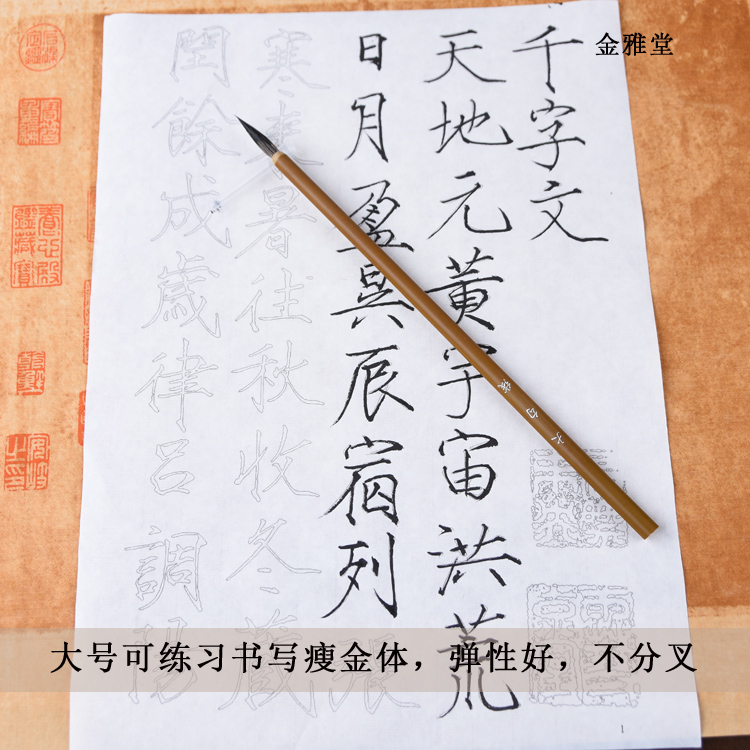 金雅堂
千字文
天地元黄宇宙洪荒
日月盈昃辰宿列張
寒來暑往秋收冬藏
閏餘成歲律呂調陽
大号可练习书写瘦金体，弹性好，不分叉
1